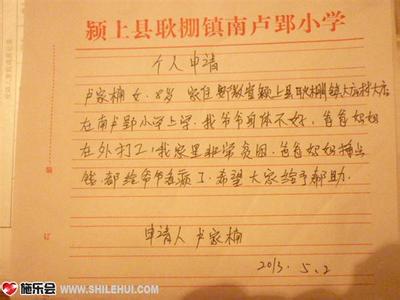 颍上县耿棚镇南卢郢小学
个人申请
卢家楠 女、8岁 家住安徽省颍上县耿棚镇大店村大店
在南卢郢小学上学,我爷爷身体不好,爸爸妈妈
在外打工,我家里非常贫困,爸爸妈妈挣点
钱都给爷爷看病了、希望大家给予帮助、
申请人 卢家楠
2013. 5. 2
装
订
施乐会
WWW.SHILEHUI.COM